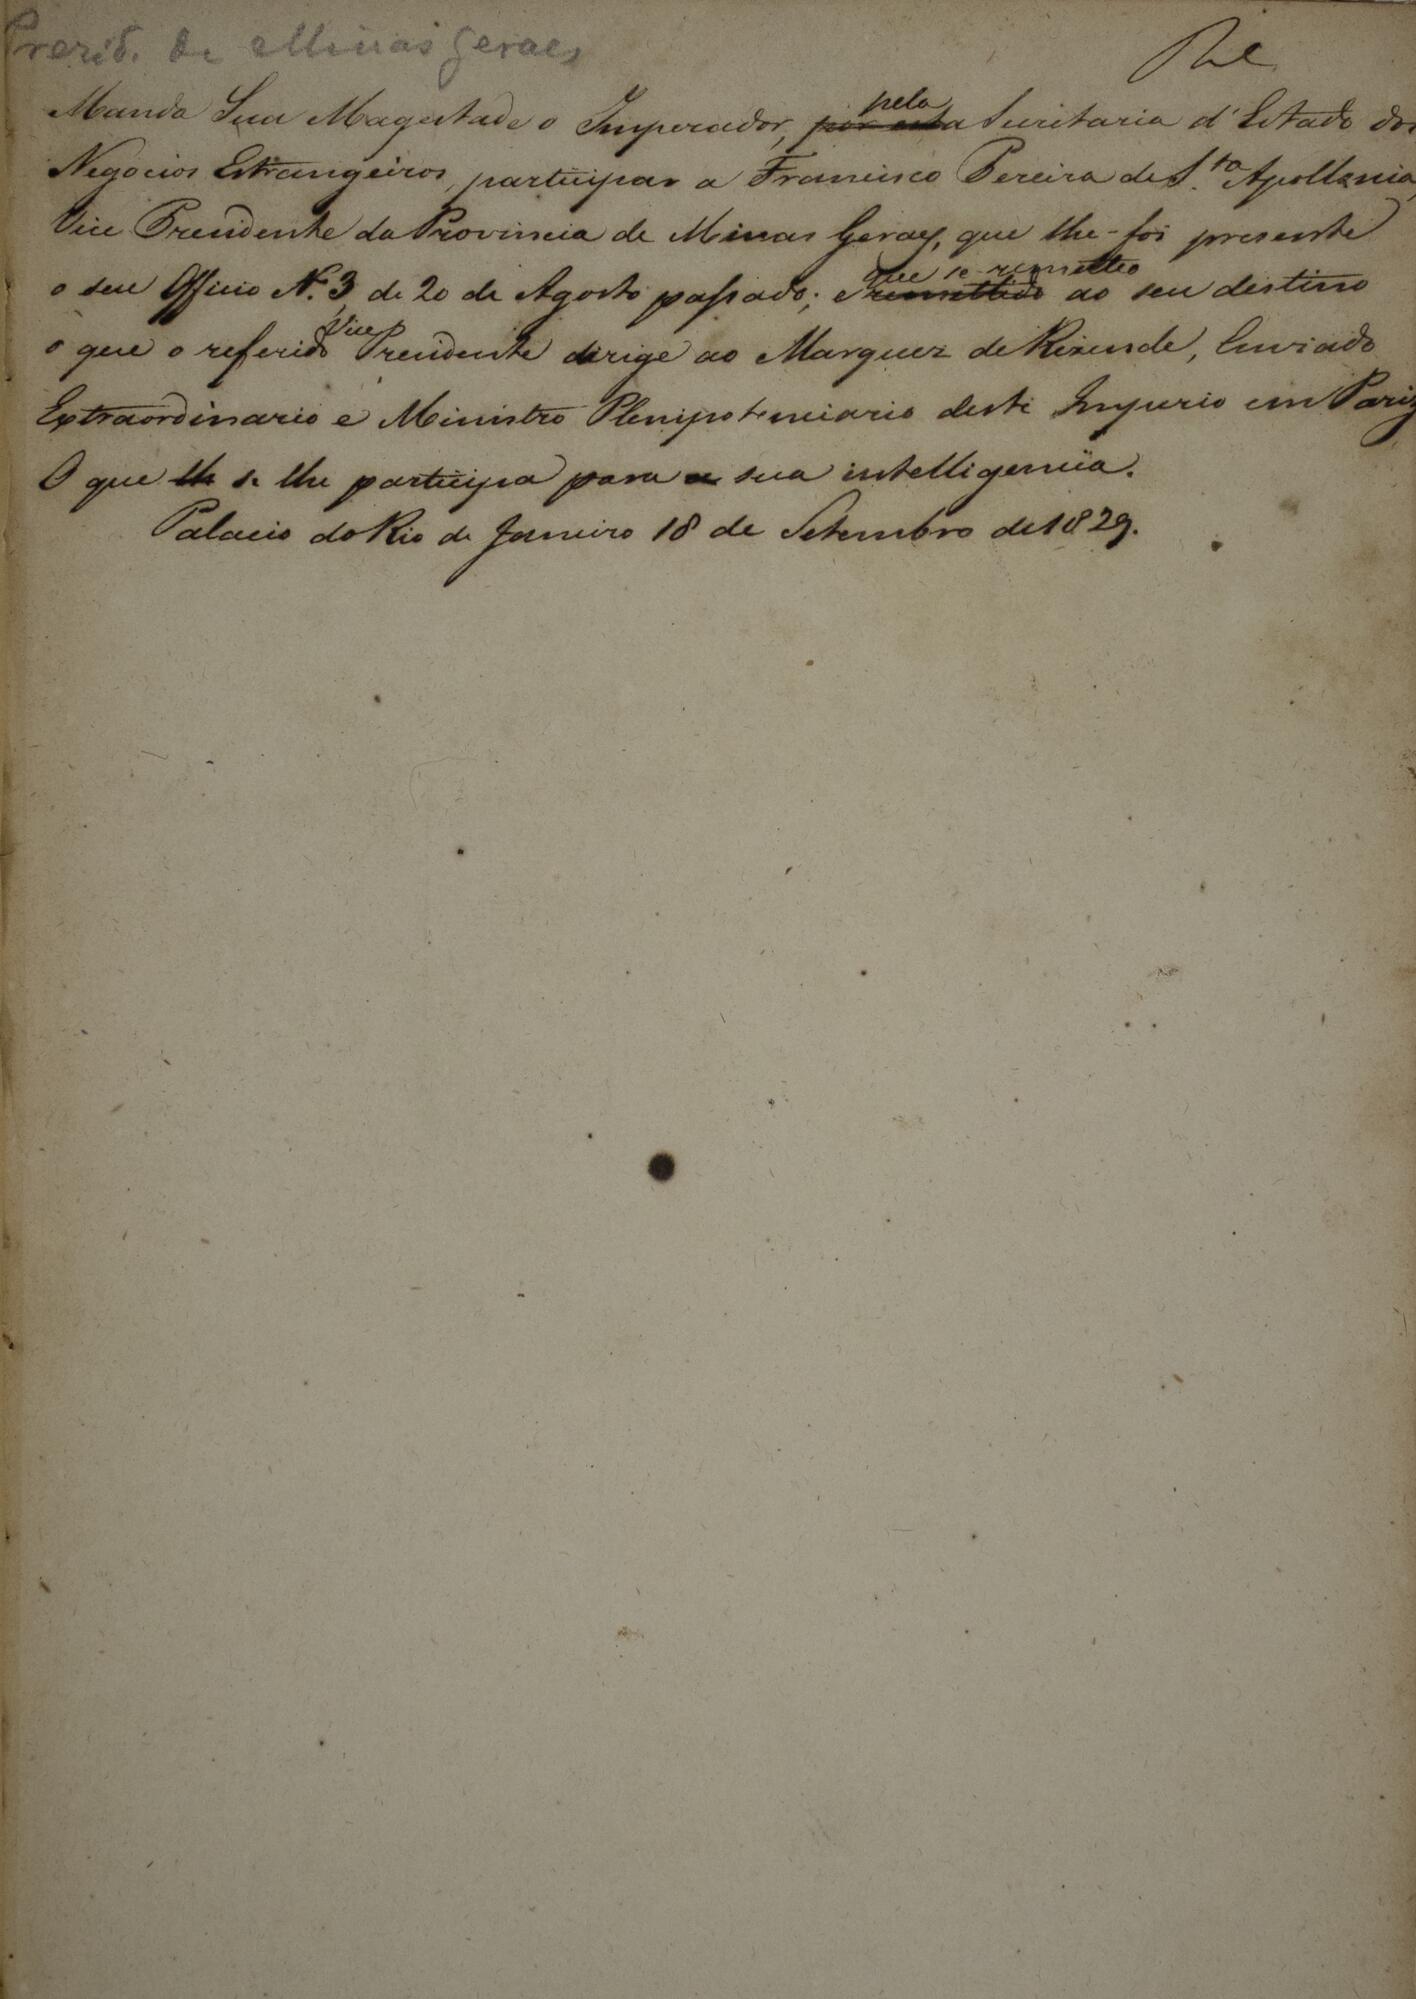 Presid. de Minas Geraes
Manda Sua Magestade o Imperador, por esta pela Secretaria d'Estado dos
Negocios Estrangeiros, participar a Francisco Pereira de S.ta Apollonia,
Vice Presidente da Provincia de Minas Geraes, que lhe foi presente
o seu Officio N.º 3, de 20 de Agosto passado; e remettido que se remetteo ao seu destino
o que o referido Vice Presidente dirige ao Marquez de Rezende, Enviado
Extraordinario e Ministro Plenipotenciario deste Imperio em Pariz
O que lh se lhe participa para a sua intelligencia.
Palacio do Rio de Janeiro 18 de Setembro de 1829.